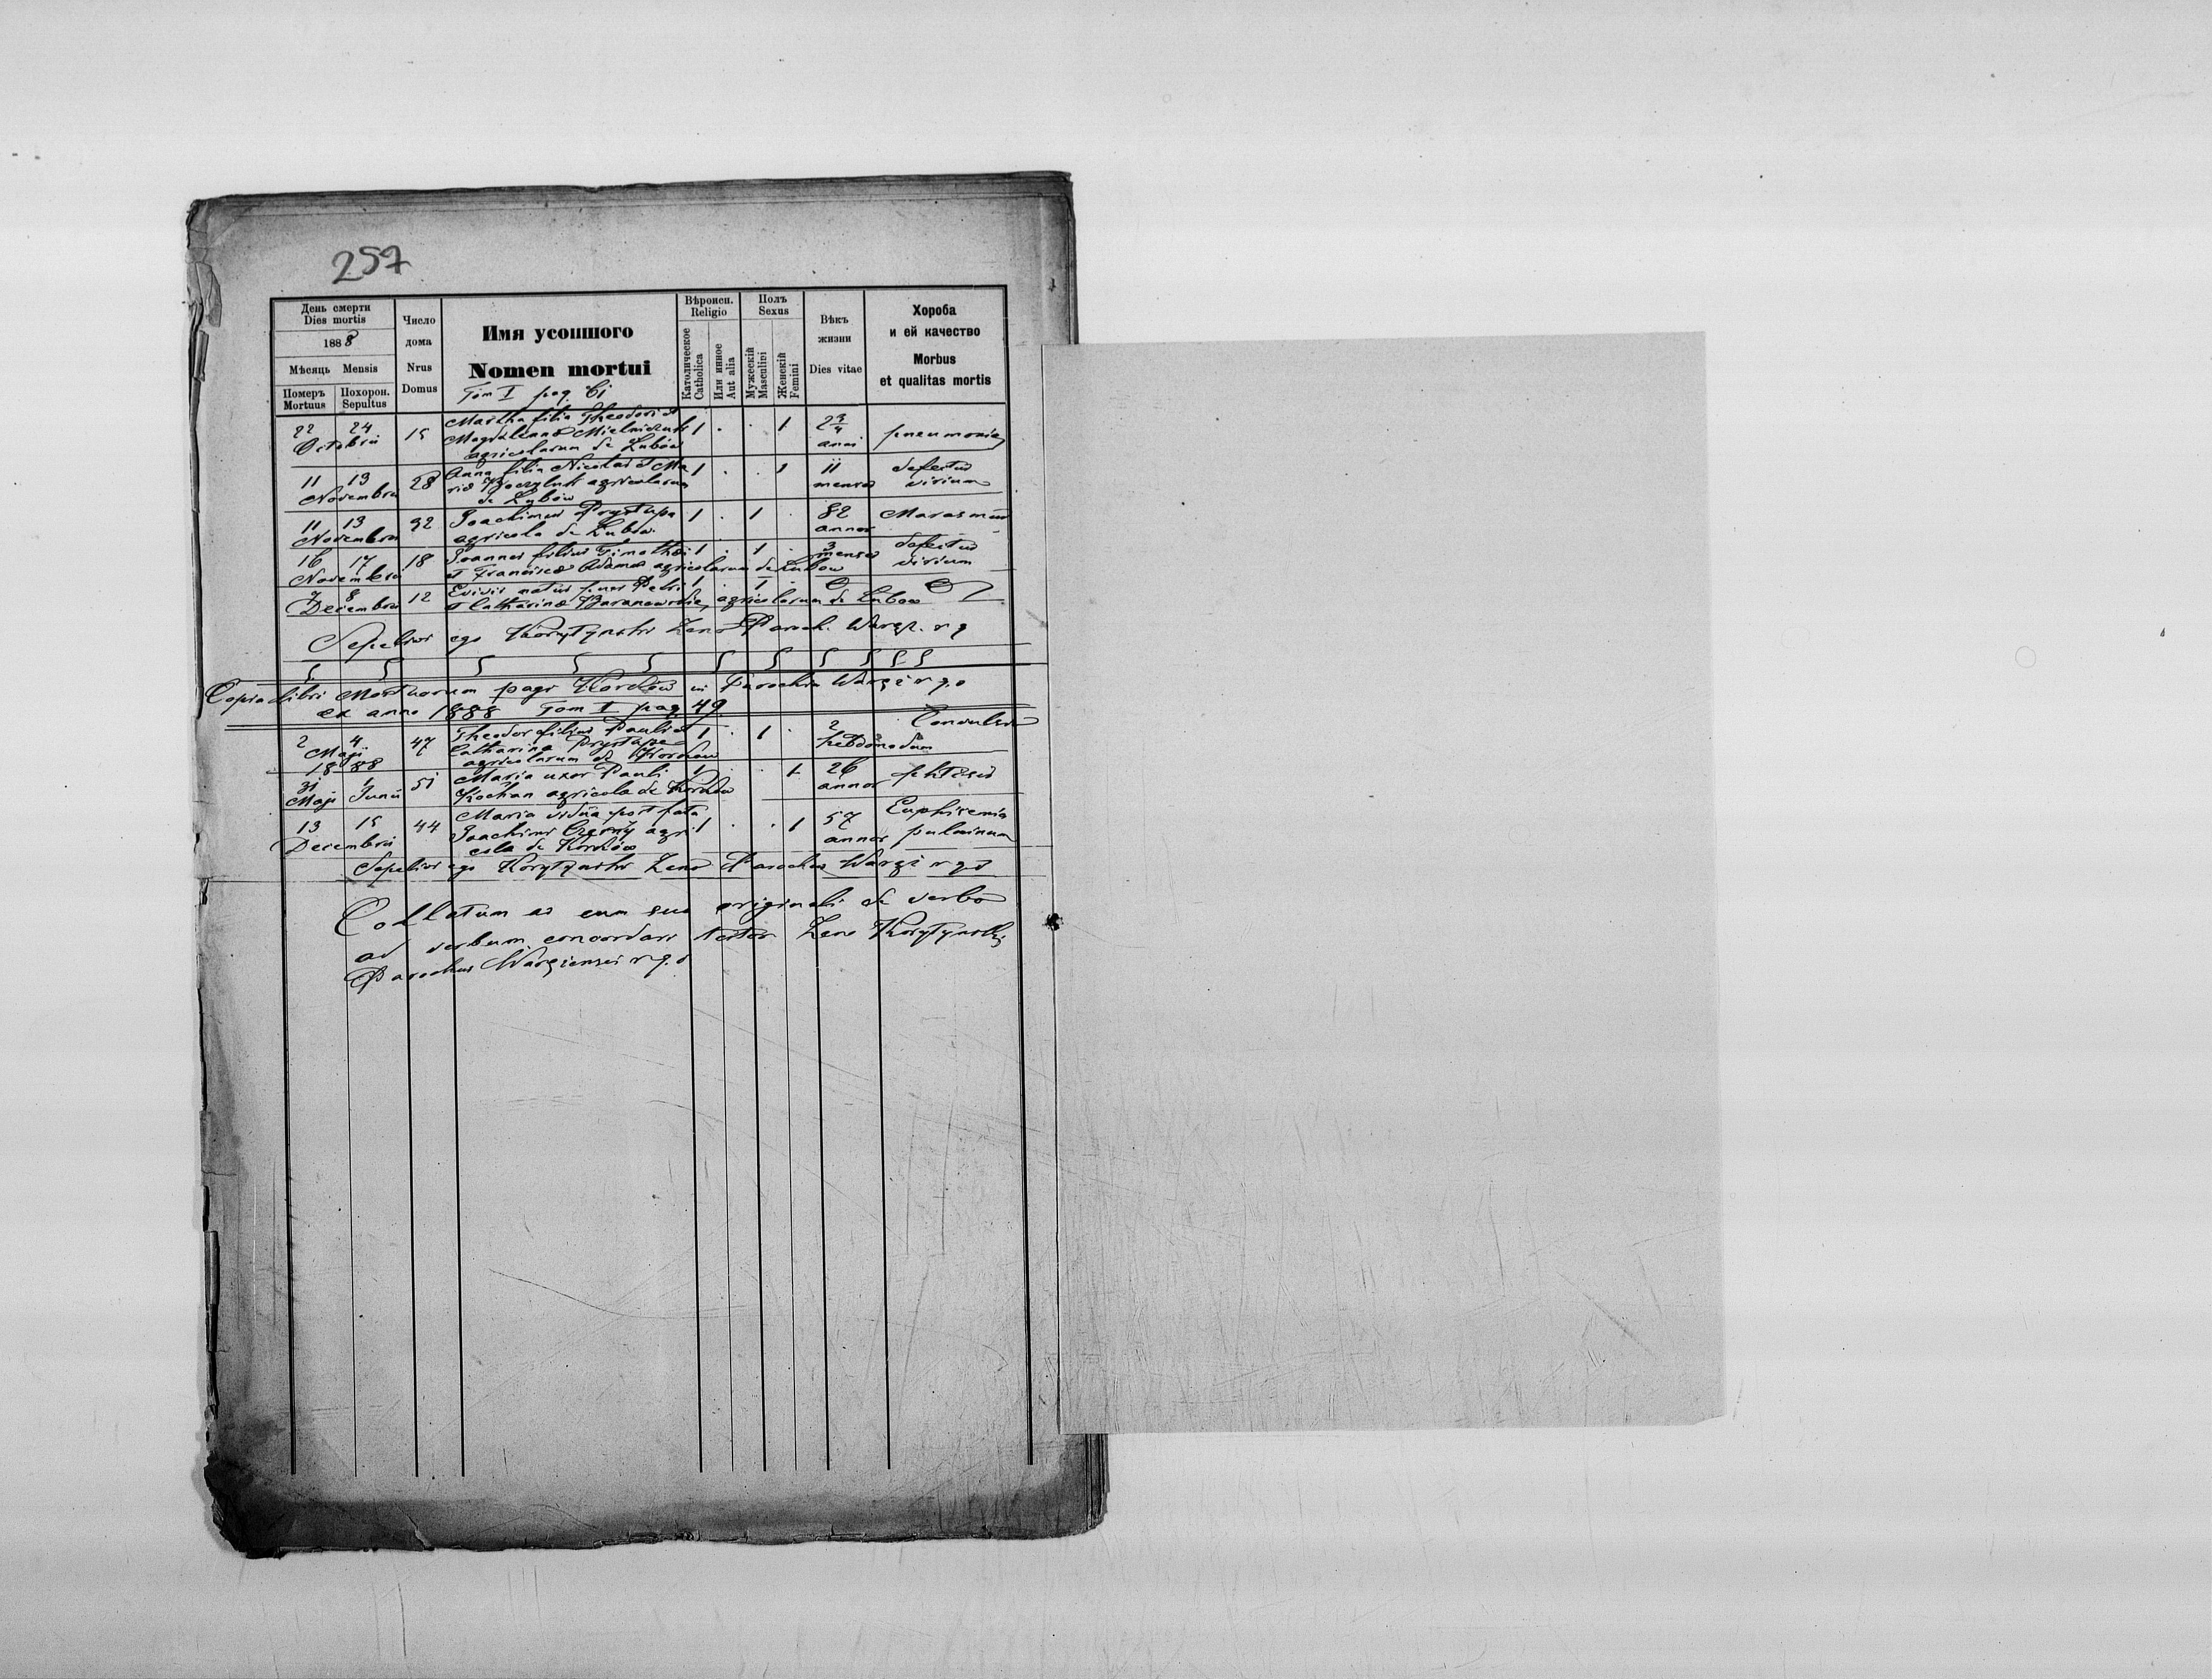 257
День смерти
Dies mortis
1888
Мѣсяць Mensis
Померъ Похорон.
Mortuus Sepultus
Число
дома
Nrus
Domus
Имя усопшого
Nomen mortui
Tom I pag. 61
Вѣроисп.
Religio
Католическое
Catholica
Или инное
Aut alia
Полъ
Sexus
Мужескій
Masculini
Женскій
Femini
Вѣкъ
жизни
Dies vitae
Хороба
и ей качество
Morbus
et qualitas mortis
22 24
Octobris
15
Martha filia Theodori et
Magdalenae Mielniczuk
agricolarum de Lubów
1 . . 1
2 3/4
anni
pneumonia
11 13
Novembris
28
Anna filia Nicolai et Ma
riae agricolarum
de Lubów
1 . . 1
11
menses
defectus
virium
11 13
Novembris
32
Joachimus Prystupa
agricola de Lubow
1 . 1 .
82
annor
Marasmus
16 17
Novembris
18
Joannes filius Timothei
et Franciscae Adamos agricolarum de Lubow
1 . 1 .
3
menses
defectus
virium
7 8
Decembris
12
natus puer Petri
et Catharinae Baranowskie, agricolarum de Lubow
1 . 1 .
0 0
Sepelivi ego Korytynski Zeno Paroch. Waręz. r g
Copia libri Mortuorum pagi Korków in Parochia Waręż r. g. o
ex anno 1888 Tom I pag. 49.
2 4
Maji
1888
47
Theodor filius Pauli et
Catharina Prystupa
agricolarum de Korkow
1 . 1 .
2
hebdomadum
Convulsio
31 1
Maji Junii
51
Maria uxor Pauli
Kochan agricola de Korków
1 . . 1
26
annor
phtisis
13 15
Decembris
44
Maria vidua post fata
Joachimi Czerny agri
cola de Korków
1 . . 1
57
annor
Emphisemia
pulminum
Sepelivi ego Korytynski Zeno Parochus Waręż r g o
Collatum et cum suo originali de verbo
ad verbum concordari testor Zeno Korytynski
Parochus Waręziensis r. g. o